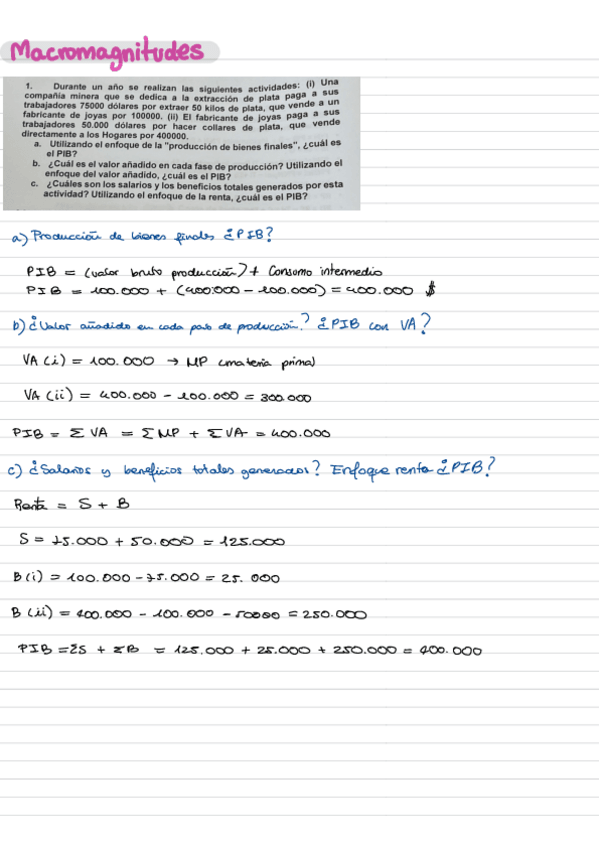 Macromagnitudes
1. Durante un año se realizan las siguientes actividades: (i) Una
compañía minera que se dedica a la extracción de plata paga a sus
trabajadores 75000 dólares por extraer 50 kilos de plata, que vende a un
fabricante de joyas por 100000. (ii) El fabricante de joyas paga a sus
trabajadores 50.000 dólares por hacer collares de plata, que vende
directamente a los Hogares por 400000.
a. Utilizando el enfoque de la "producción de bienes finales", ¿cuál es
el PIB?
b. ¿Cuál es el valor añadido en cada fase de producción? Utilizando el
enfoque del valor añadido, ¿cuál es el PIB?
c. ¿Cuáles son los salarios y los beneficios totales generados por esta
actividad? Utilizando el enfoque de la renta, ¿cuál es el PIB?
a) Producción de bienes finales ¿PIB?
PIB = (valor bruto producción) + Consumo intermedio
PIB = 100.000 + (400.000 - 100.000) = 400.000 $
b) ¿Valor añadido en cada paso de producción? ¿PIB con VA?
VA (i) = 100.000 → MP (materia prima)
VA (ii) = 400.000 - 100.000 = 300.000
PIB = Σ VA = Σ MP + Σ VA = 400.000
c) ¿Salarios y beneficios totales generados? Enfoque renta ¿PIB?
Renta = S + B
S = 75.000 + 50.000 = 125.000
B (i) = 100.000 - 75.000 = 25.000
B (ii) = 400.000 - 100.000 - 50000 = 250.000
PIB = ΣS + ΣB = 125.000 + 25.000 + 250.000 = 400.000